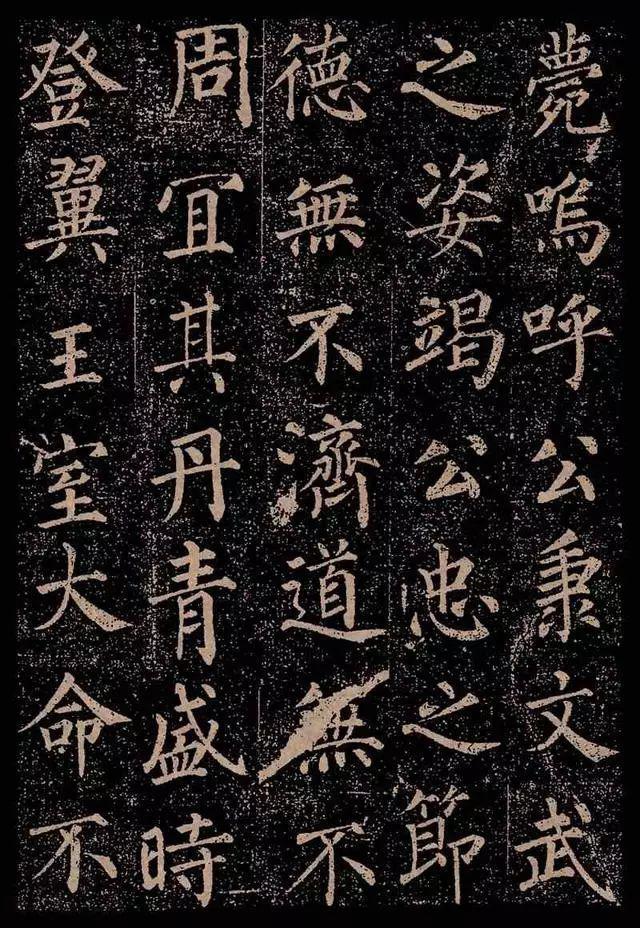 薨嗚呼公秉文武
之姿竭公忠之節
德無不濟道無不
周冝其丹青盛時
登翼王室大命不